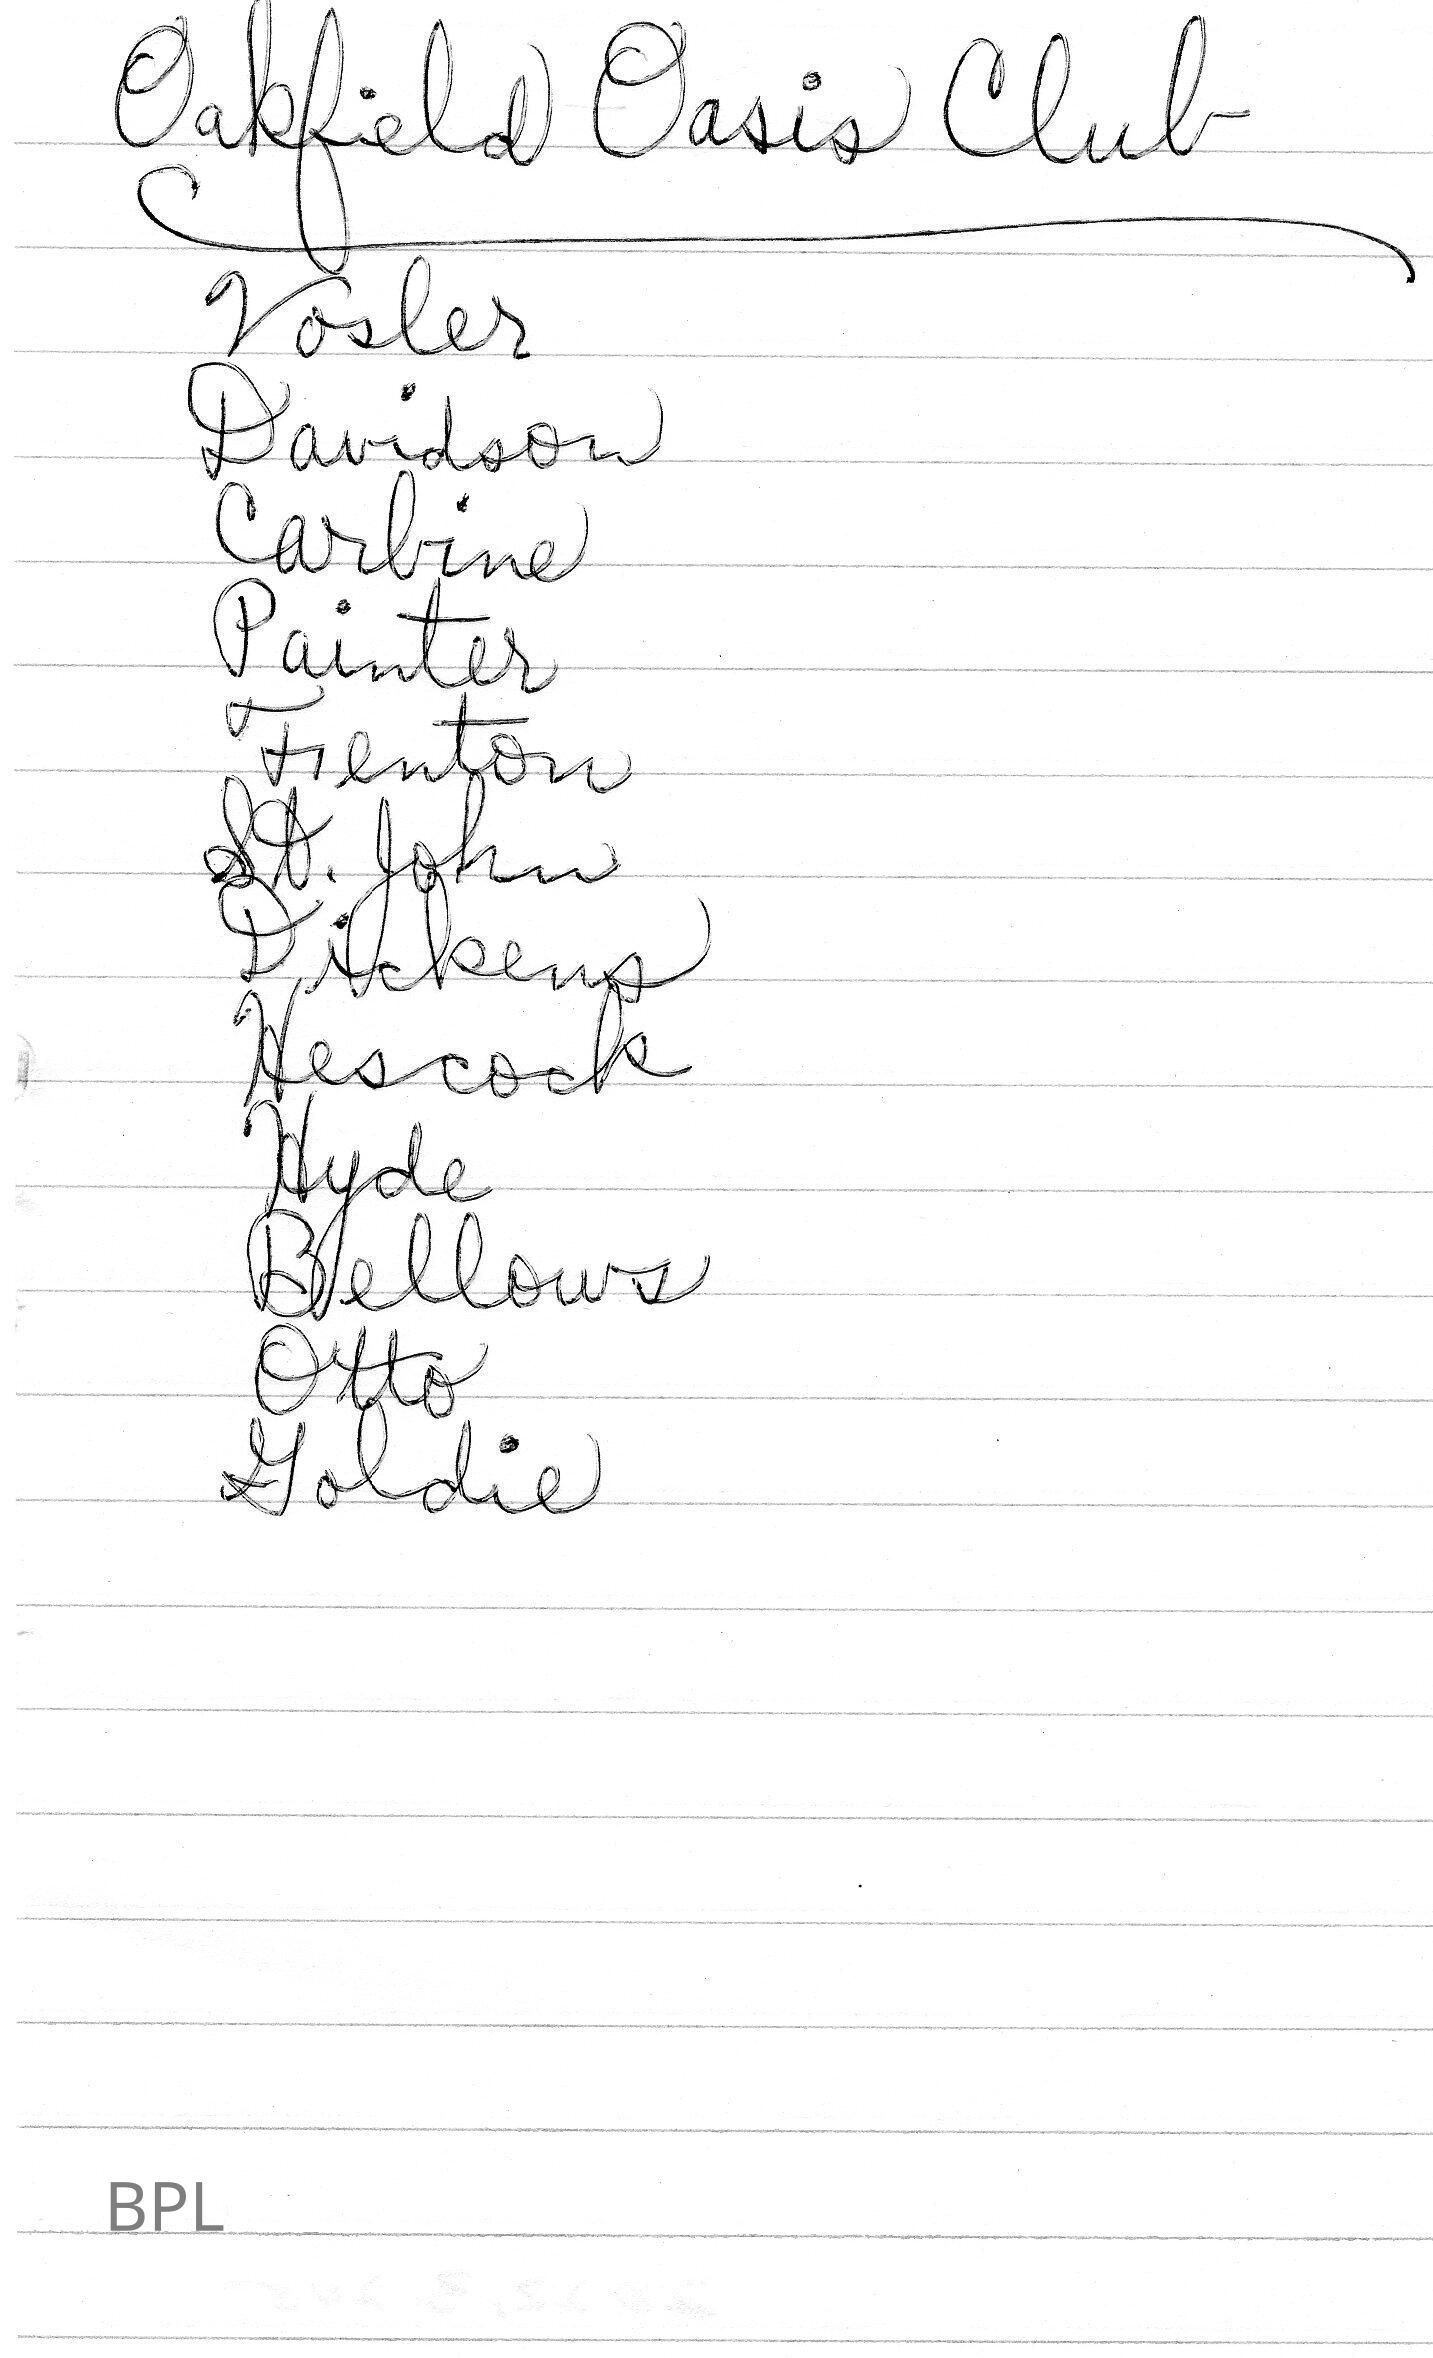 Oakfield Oasis Club
Vosler
Davidson
Carbine
Painter
Fenton
St. John
Dickens
Hescock
Hyde
Bellows
Otto
Goldie
BPL